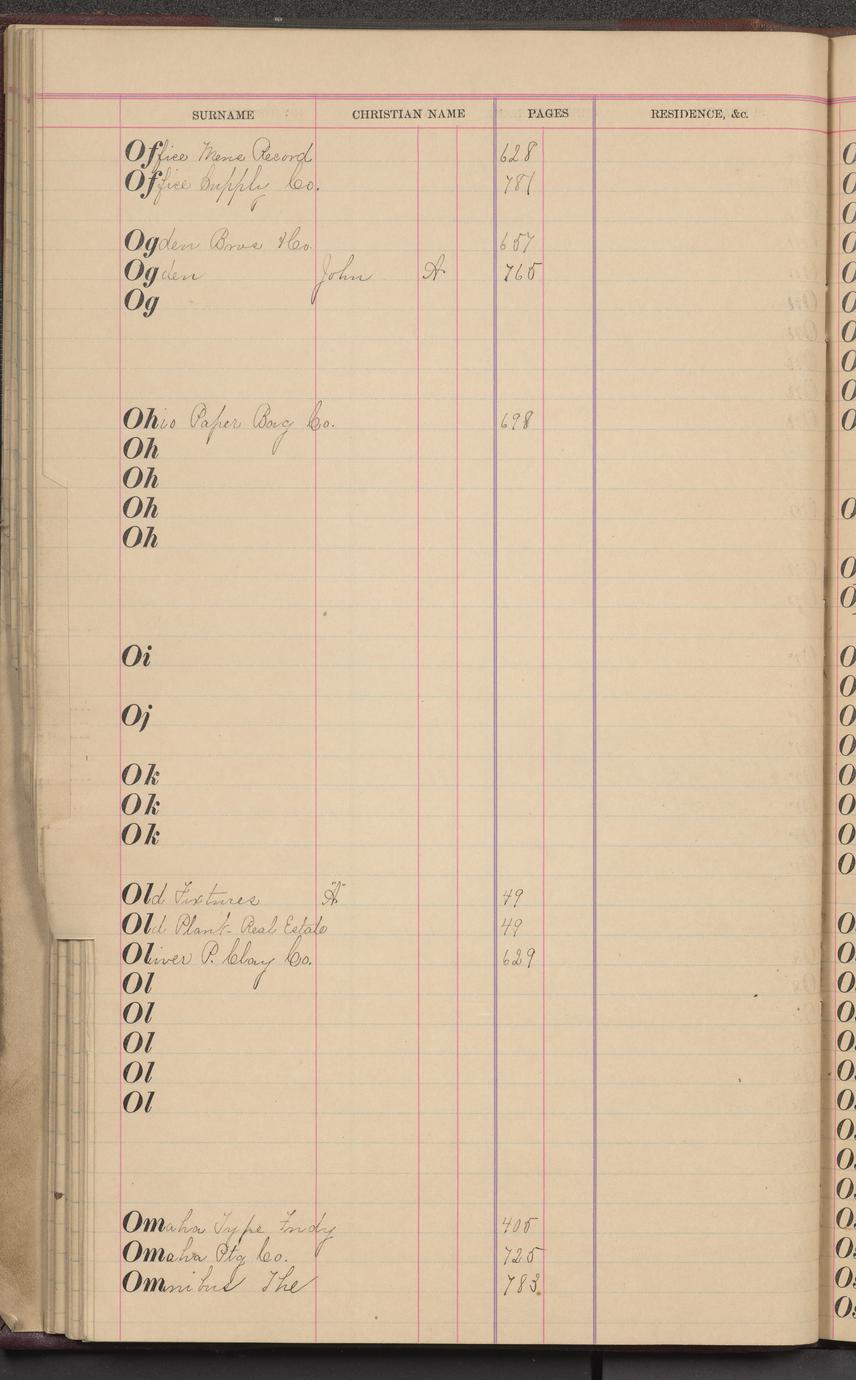 SURNAME CHRISTIAN NAME PAGES RESIDENCE, &c.
Office Mens Record 628
Office Supply Co. 781
Ogden Bros & Co. 657
Ogden John A 765
Og
Ohio Paper Bag Co. 698
Oh
Oh
Oh
Oh
Oi
Oj
Ok
Ok
Ok
Old Fixtures "A" 49
Old Plant - Real Estate 49
Oliver P. Clay Co. 629
Ol
Ol
Ol
Ol
Ol
Omaha Type Fndy 405
Omaha Ptg Co. 725
Omnibus The 783